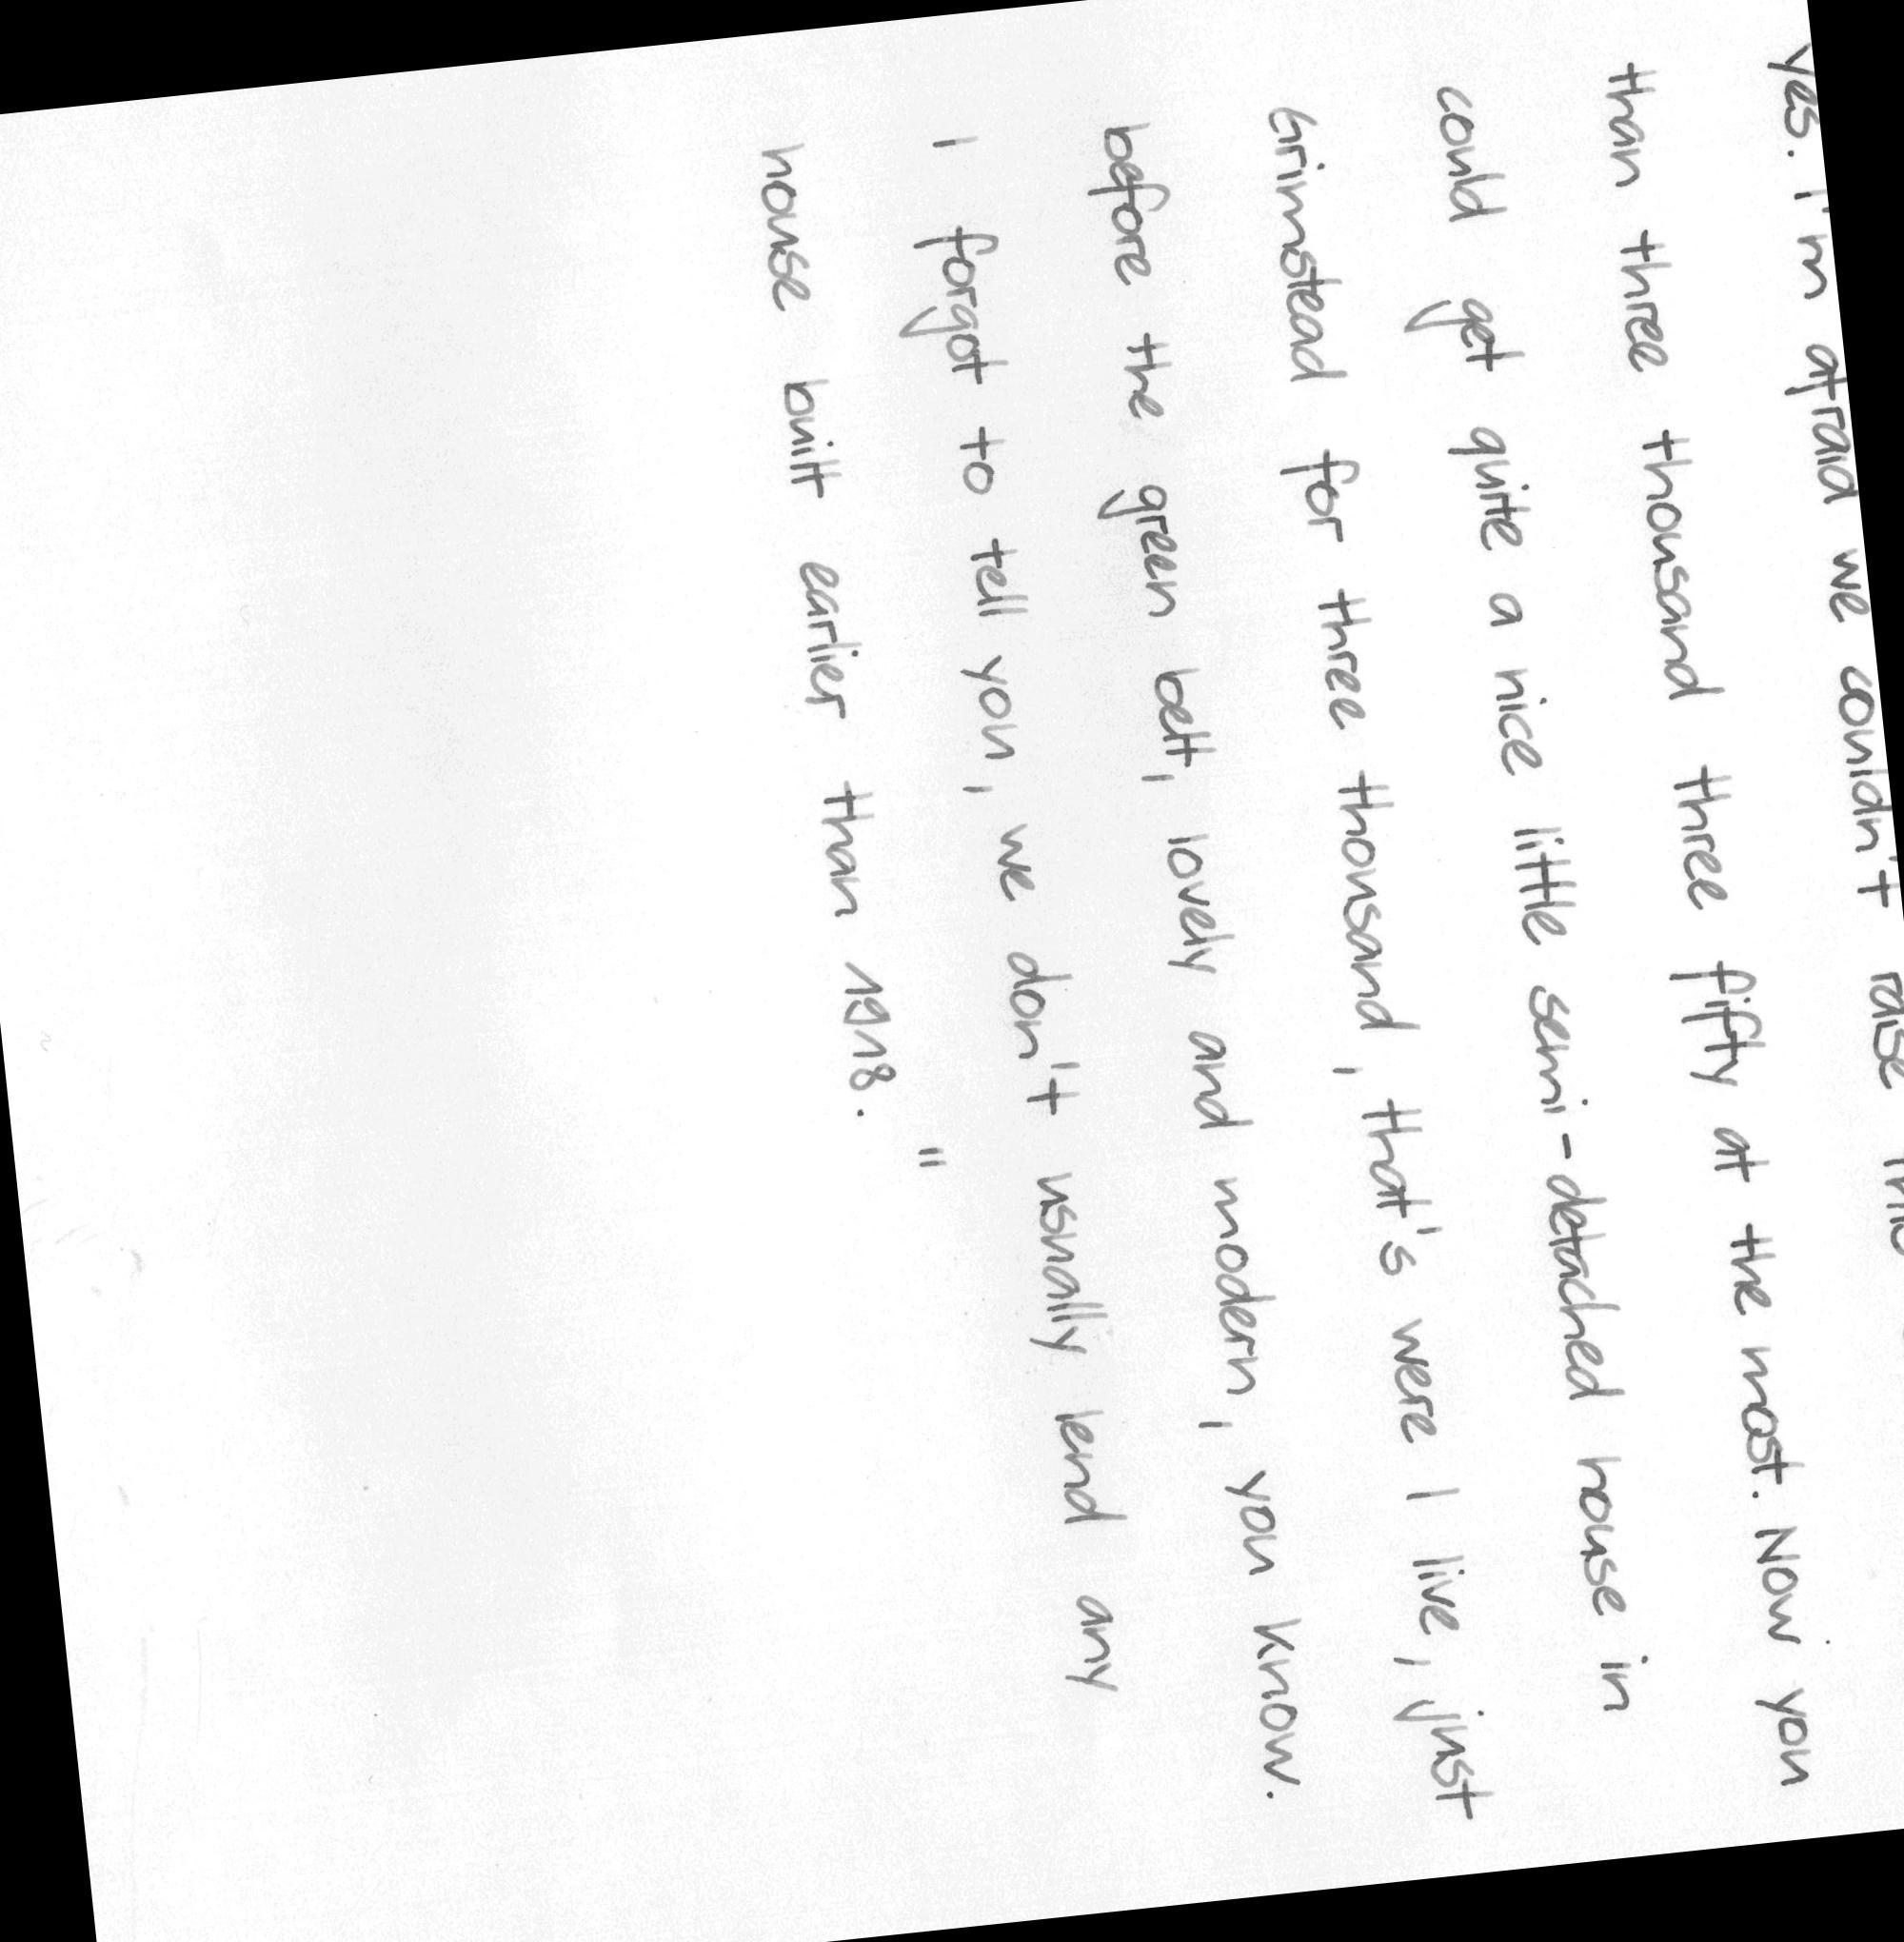 yes. I'm afraid we couldn't raise
than three thousand three fifty at the most. Now you
could get quite a nice little semi-detached house in
Grimstead for three thousand, that's were I live, just
before the green belt, lovely and modern, you know.
I forgot to tell you, we don't usually lend any
house built earlier than 1918."